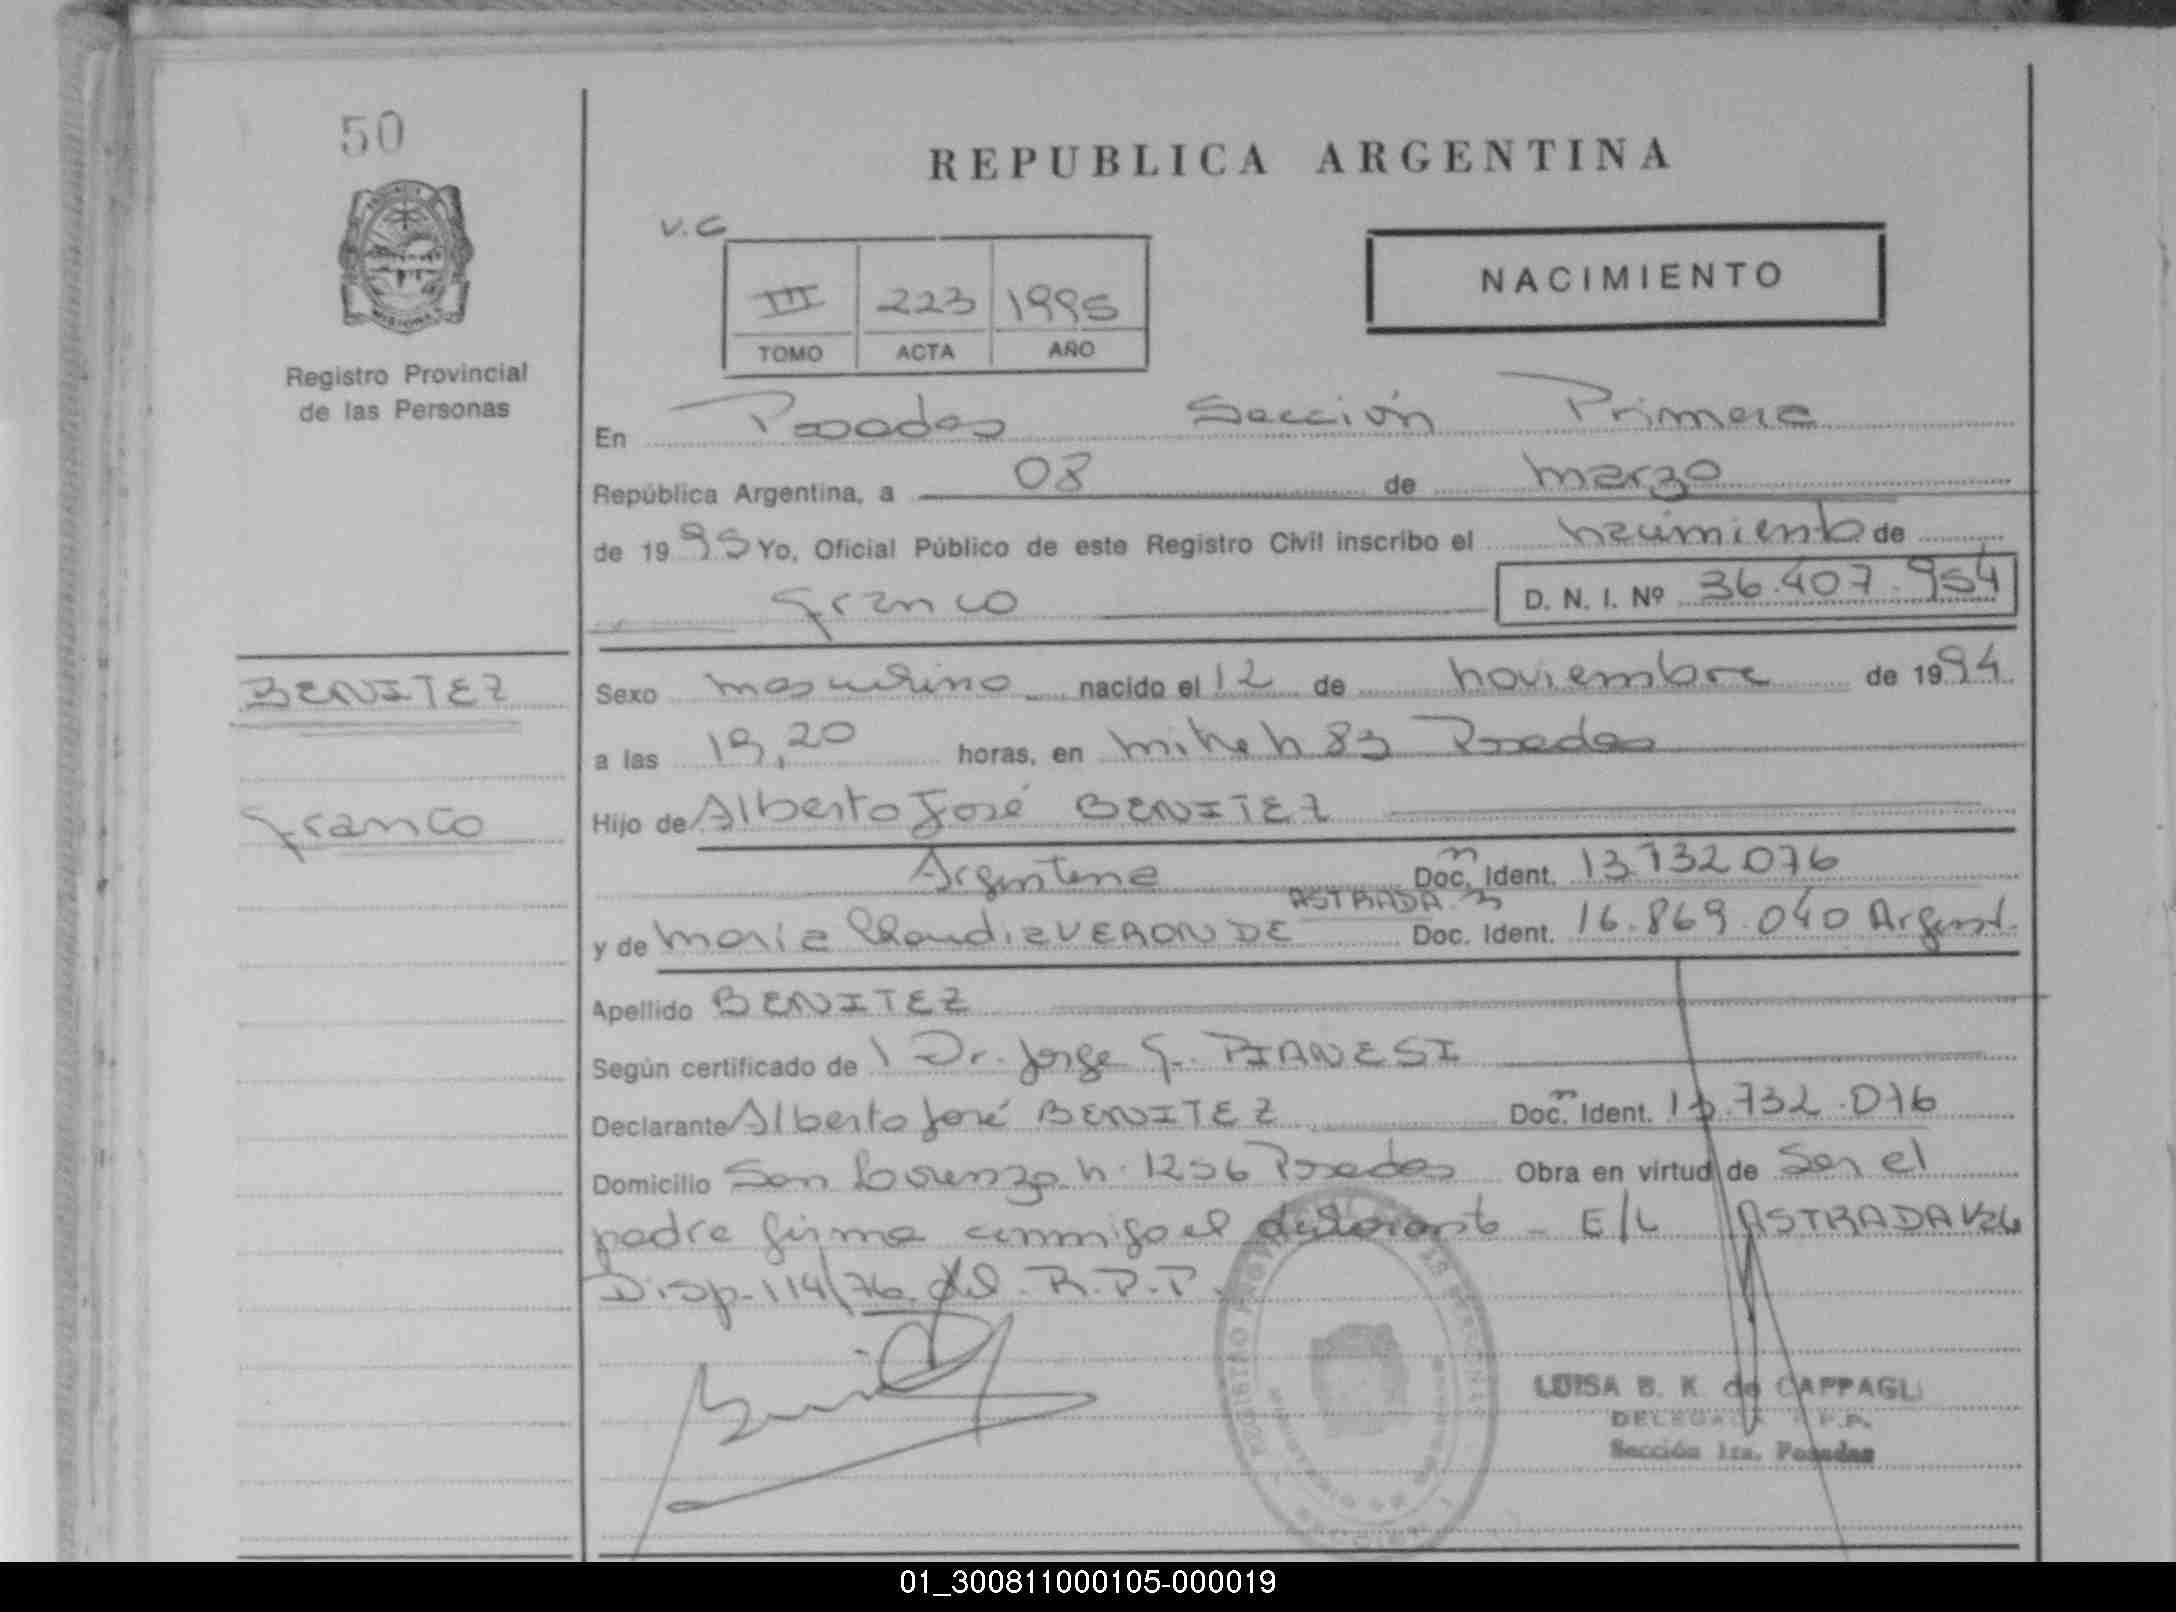 50
REPUBLICA ARGENTINA
V.C
NACIMIENTO
III 223 1995
TOMO ACTA AÑO
Registro Provincial
de las Personas
En Posadas Sección Primera
República Argentina, a 08 de marzo
de 1995 Yo, Oficial Público de este Registro Civil inscribo el nacimiento de
Franco D. N. I. Nº 36.407.954
BENITEZ
Franco
Sexo masculino nacido el 12 de noviembre de 1994
a las 19,20 horas, en Posadas
Hijo de Alberto José BENITEZ
Argentina Doc. Ident. 13.732.076
ASTRADA
y de Maria Claudia VERON DE Doc. Ident. 16.869.040 Argent.
Apellido BENITEZ
Según certificado de Dr. Jorge G. PIANESI
Declarante Alberto José BENITEZ Doc. Ident. 13.732.076
Domicilio San Lorenzo n. 1256 Posadas Obra en virtud de ser el
padre firma conmigo el declarante - E/L ASTRADA Vale
Disp. 114/76 del R.P.P.
REGISTRO PROVINCIAL DE LAS PERSONAS
MINISTERIO DE GOBIERNO
MISIONES
LUISA B. K. de CAPPAGLI
DELEGADA R.P.P.
Sección 1ra. Posadas
01_300811000105-000019